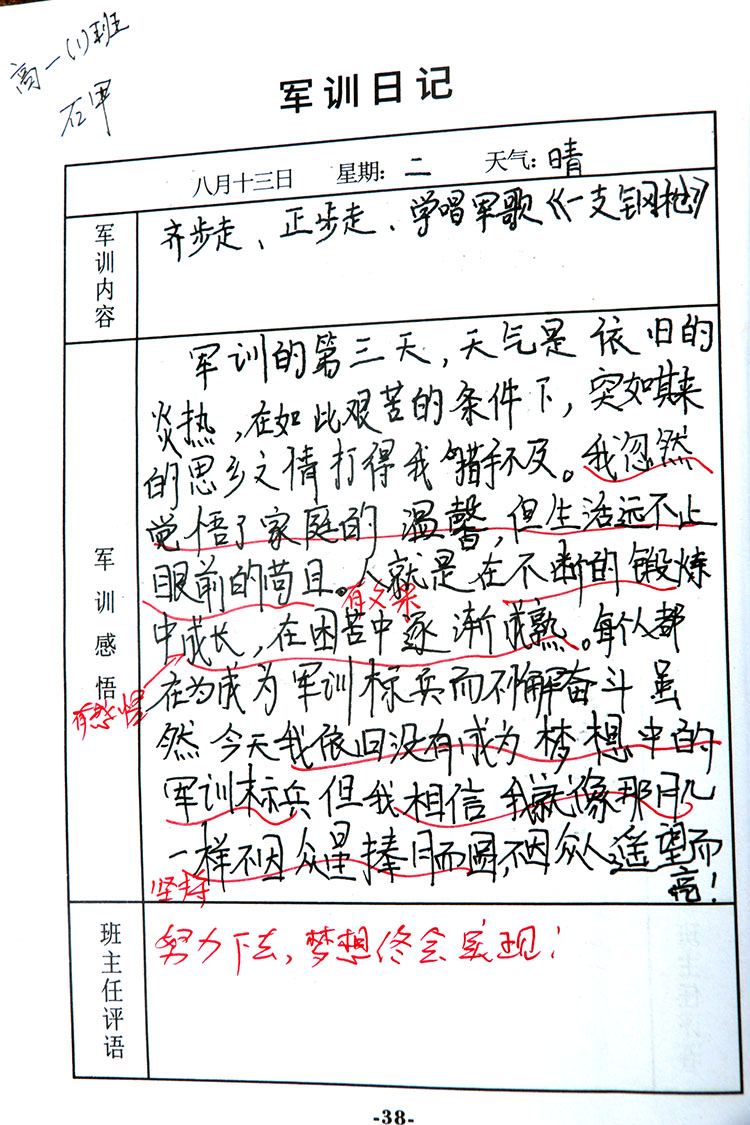 高一(1)班
石军
军训日记
八月十三日 星期：二 天气：晴
军训内容
齐步走、正步走、学唱军歌《一支钢枪》
军训感悟
军训的第三天，天气是依旧的
炎热，在如此艰苦的条件下，突如其来
的思乡之情打得我措手不及。我忽然
觉悟了家庭的温馨，但生活远不止
眼前的苟且。人就是在不断的锻炼
有文采
中成长，在困苦中逐渐成熟。每个人都
有感悟
在为成为军训标兵而不懈奋斗虽
然今天我依旧没有成为梦想中的
军训标兵但我相信我就像那月儿
一样不因众星捧月而圆，不因众人遥望而
亮！
坚持
班主任评语
努力下去，梦想终会实现！
-38-